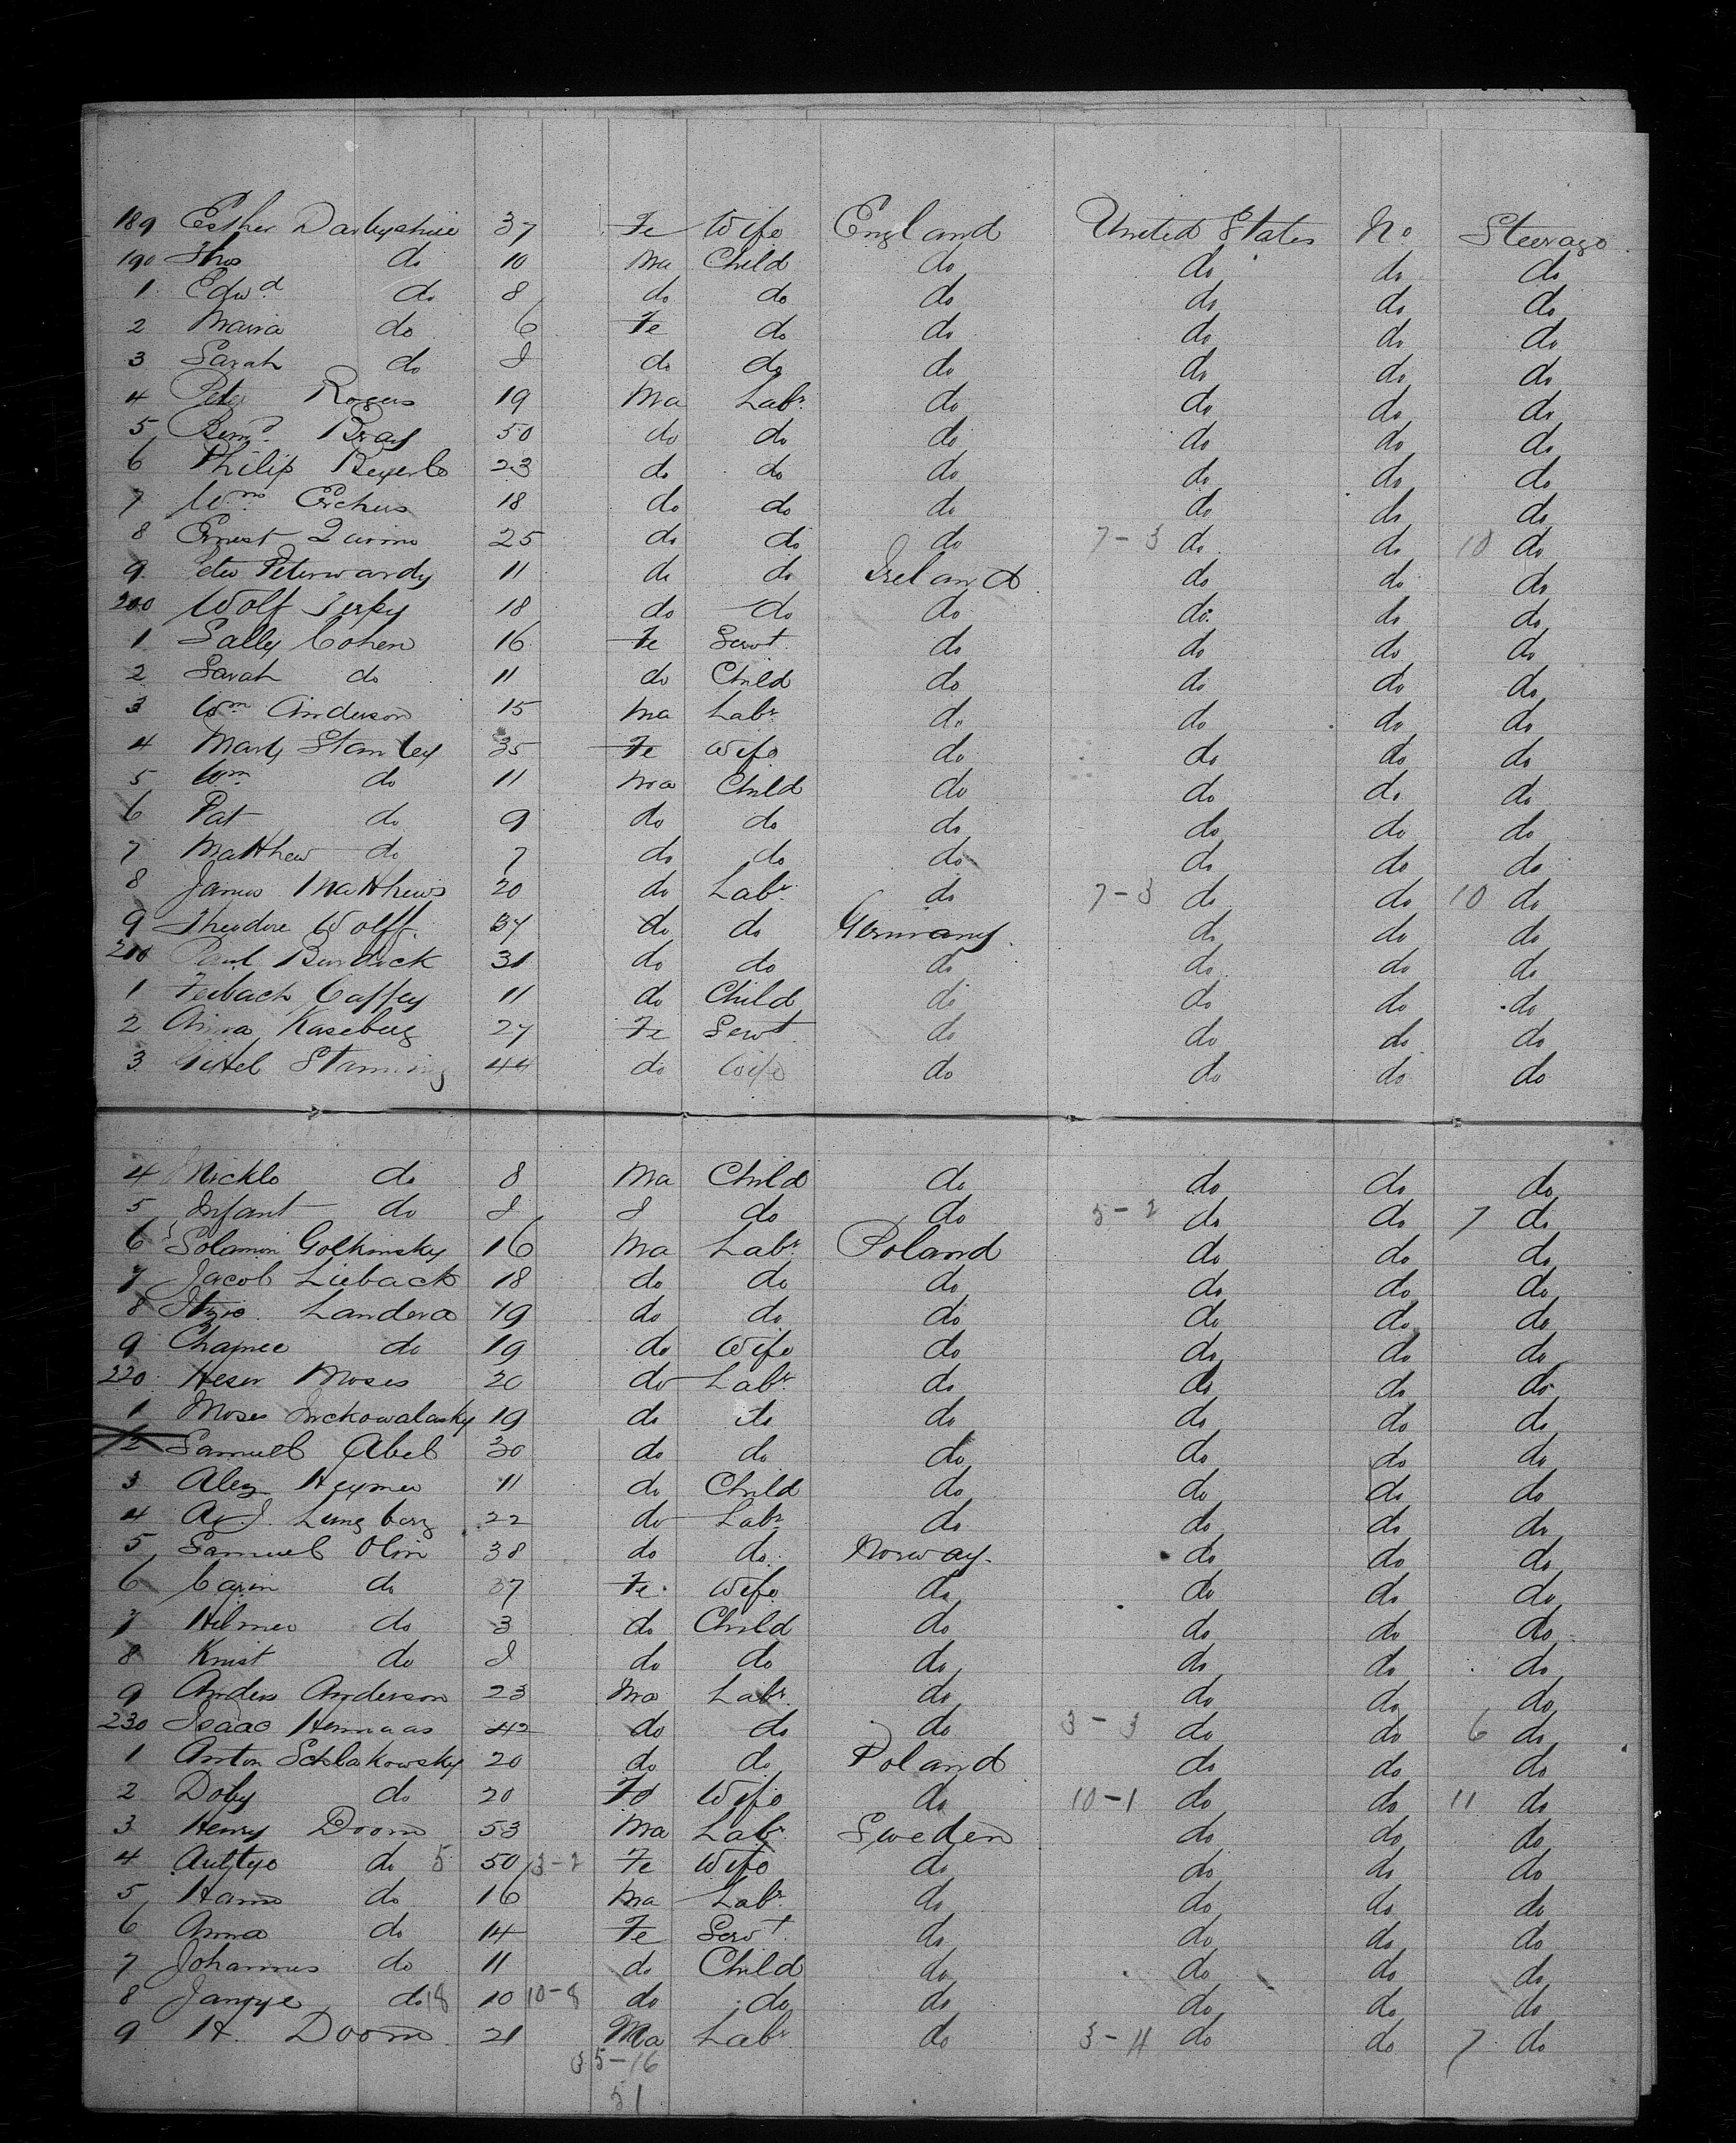 189 Esther Darbyshire 37 Fe Wife England United States No Steerage
190 Thos do 10 Ma Child do do do do
1 Edwd do 8 do do do do do do
2 Maria do 6 Fe do do do do do
3 Sarah do I do do do do do do
4 Peter Rogers 19 Ma Labr do do do do
5 Bernd Bray 50 do do do do do do
6 Philip 23 do do do do do do
7 Wm 18 do do do do do do
8 Ernest 25 do do do 7-3 do do 10 do
9 Peterwardy 11 do do Ireland do do do
200 Wolf 18 do do do do do do
1 Sally Cohen 16 Fe Servt do do do do
2 Sarah do 11 do Child do do do do
3 Wm Anderson 15 Ma Labr do do do do
4 Mary Stanley 35 Fe Wife do do do do
5 Wm do 11 Ma Child do do do do
6 Pat do 9 do do do do do do
7 Matthew do 7 do do do do do do
8 James Matthews 20 do Labr do 7-3 do do 10 do
9 Theodore Wolff. 34 do do Germany. do do do
210 Paul Burdick 31 do do do do do do
1 Feibach Caffey 11 do Child do do do do
2 Anna Kaseberg 27 Fe Servt do do do do
3 Gittel 44 do Wife do do do do
4 Micklo do 8 Ma Child do do do do
5 Infant do I I do do 5-2 do do 7 do
6 Solamon Golkinsky 16 Ma Labr Poland do do do
7 Jacob Lieback 18 do do do do do do
8 Landera 19 do do do do do do
9 Chajnee do 19 do Wife do do do do
220 Heser Moses 20 do Labr do do do do
1 Moses 19 do do do do do do
2 Samuel Abel 30 do do do do do do
3 Alex Heymer 11 do Child do do do do
4 A. J. Lungberg 22 do Labr do do do do
5 Samuel Olin 38 do do Norway. do do do
6 Carin do 37 Fe Wife do do do do
7 Hilmer do 3 do Child do do do do
8 Knist do I do do do do do do
9 Anders Anderson 23 Ma Labr do do do do
230 Isaac Hermaas 42 do do do 3-3 do do 6 do
1 Anton Schlakowsky 20 do do Poland do do do
2 Doby do 20 Fe Wife do 10-1 do do 11 do
3 Henry Doorn 53 Ma Labr Sweden do do do
4 do 5 50 3-2 Fe Wife do do do do
5 Harm do 16 Ma Labr do do do do
6 Anna do 14 Fe Servt do do do do
7 Johannes do 11 do Child do do do do
8 Jantye do 18 10 10-8 do do do do do do
9 H. Doorn 21 Ma Labr do 3-4 do do 7 do
35-16
51